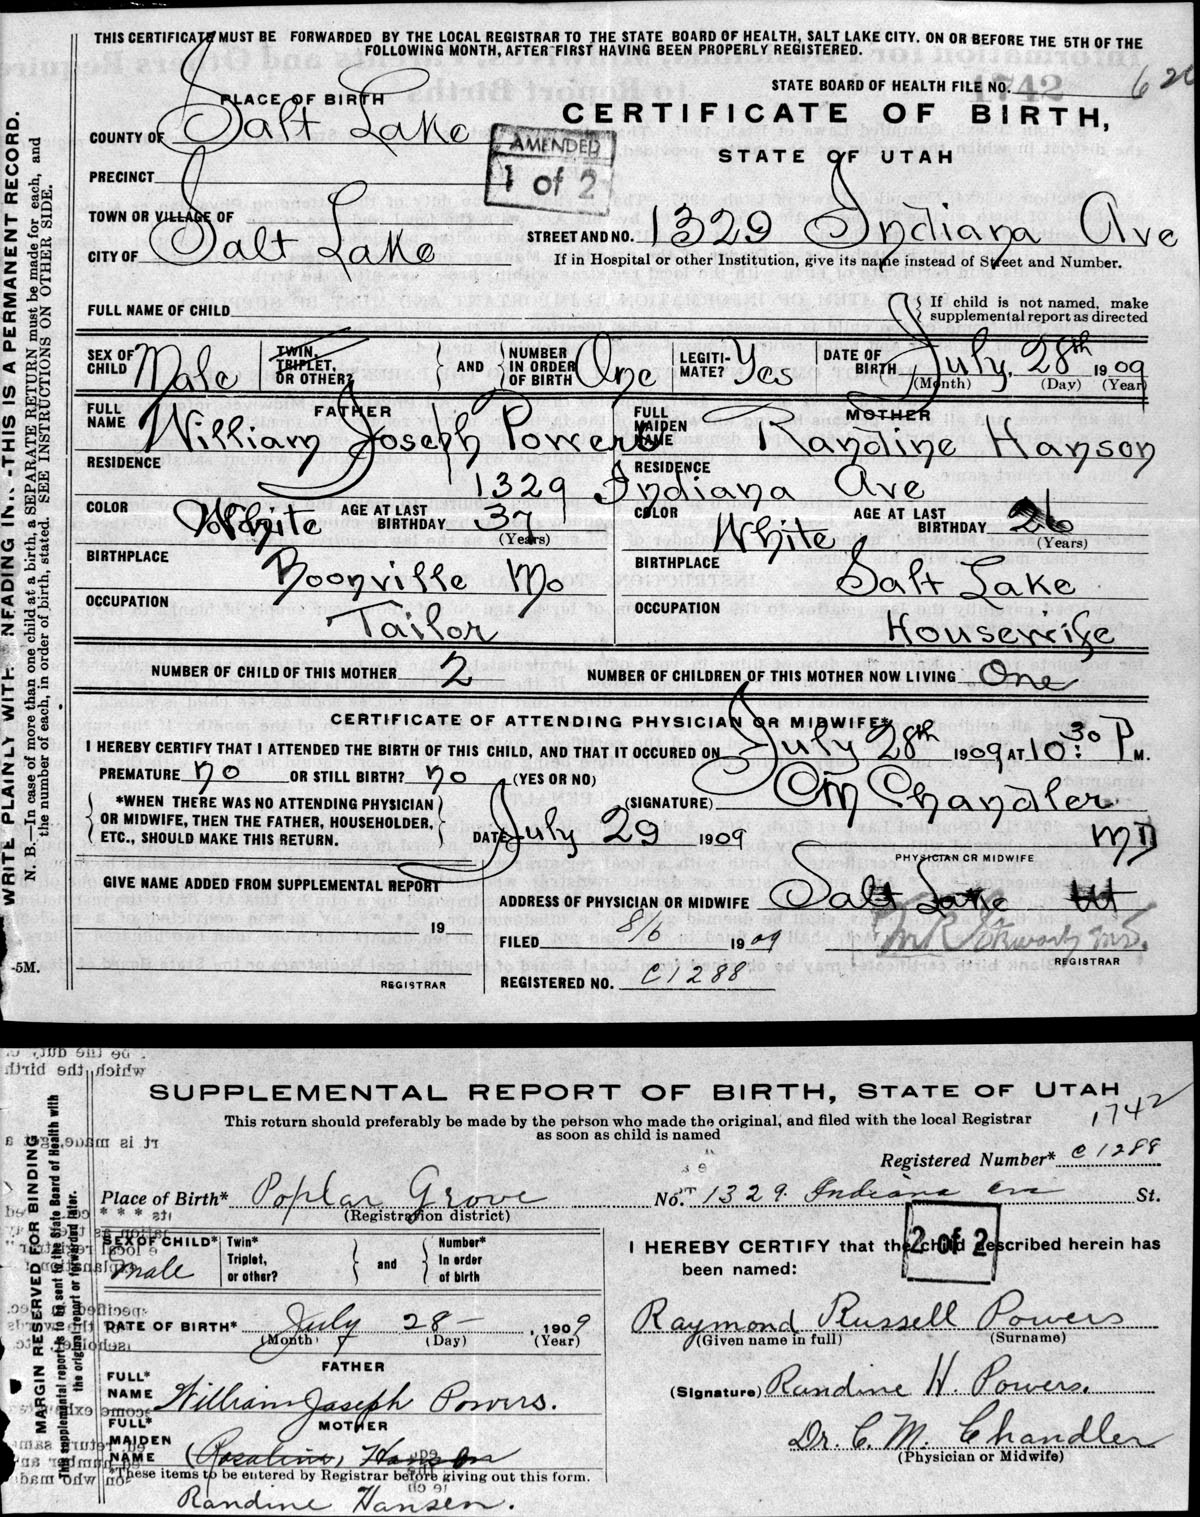 THIS CERTIFICATE MUST BE FORWARDED BY THE LOCAL REGISTRAR TO THE STATE BOARD OF HEALTH, SALT LAKE CITY. ON OR BEFORE THE 5TH OF THE
FOLLOWING MONTH, AFTER FIRST HAVING BEEN PROPERLY REGISTERED.
STATE BOARD OF HEALTH FILE NO. 1742
PLACE OF BIRTH
CERTIFICATE OF BIRTH,
COUNTY OF Salt Lake
AMENDED
1 of 2
STATE OF UTAH
PRECINCT
TOWN OR VILLAGE OF
CITY OF Salt Lake
STREET AND NO. 1329 Indiana Ave
If in Hospital or other Institution, give its name instead of Street and Number.
FULL NAME OF CHILD
If child is not named, make
supplemental report as directed
SEX OF CHILD Male
TWIN, TRIPLET, OR OTHER?
AND
NUMBER IN ORDER OF BIRTH One
LEGITIMATE? Yes
DATE OF BIRTH July, 28th 1909
(Month) (Day) (Year)
FATHER
FULL NAME William Joseph Powers
MOTHER
FULL MAIDEN NAME Randine Hanson
RESIDENCE
RESIDENCE
1329 Indiana Ave
COLOR White
AGE AT LAST BIRTHDAY 37
(Years)
COLOR White
AGE AT LAST BIRTHDAY 26
(Years)
BIRTHPLACE Boonville Mo
BIRTHPLACE Salt Lake
OCCUPATION Tailor
OCCUPATION Housewife
NUMBER OF CHILD OF THIS MOTHER 2
NUMBER OF CHILDREN OF THIS MOTHER NOW LIVING One
CERTIFICATE OF ATTENDING PHYSICIAN OR MIDWIFE*
I HEREBY CERTIFY THAT I ATTENDED THE BIRTH OF THIS CHILD, AND THAT IT OCCURED ON July 28th 1909 AT 10:30 P M.
PREMATURE no OR STILL BIRTH? no (YES OR NO)
(SIGNATURE) CM Chandler
MD
*WHEN THERE WAS NO ATTENDING PHYSICIAN
OR MIDWIFE, THEN THE FATHER, HOUSEHOLDER,
ETC., SHOULD MAKE THIS RETURN.
DATE July 29 1909
PHYSICIAN OR MIDWIFE
GIVE NAME ADDED FROM SUPPLEMENTAL REPORT
19
REGISTRAR
ADDRESS OF PHYSICIAN OR MIDWIFE Salt Lake Ut
FILED 8/6 1909
REGISTRAR
REGISTERED NO. C1288
WRITE PLAINLY WITH UNFADING INK-THIS IS A PERMANENT RECORD.
N. B.—In case of more than one child at a birth, a SEPARATE RETURN must be made for each, and
the number of each, in order of birth, stated. SEE INSTRUCTIONS ON OTHER SIDE.
-5M.
SUPPLEMENTAL REPORT OF BIRTH, STATE OF UTAH
This return should preferably be made by the person who made the original, and filed with the local Registrar
as soon as child is named
1742
Registered Number* C1288
Place of Birth* Poplar Grove
(Registration district)
No. 1329 Indiana Ave St.
2 of 2
SEX OF CHILD* Male
Twin* Triplet, or other?
and
Number* In order of birth
I HEREBY CERTIFY that the child described herein has
been named:
DATE OF BIRTH* July 28- 1909
(Month) (Day) (Year)
Raymond Russell Powers
(Given name in full) (Surname)
FATHER
FULL* NAME William Joseph Powers.
(Signature) Randine H. Powers.
MOTHER
FULL* MAIDEN NAME (Rosaline, Hansen
Dr. C. M. Chandler
(Physician or Midwife)
*These items to be entered by Registrar before giving out this form.
Randine Hansen.
MARGIN RESERVED FOR BINDING
This supplemental report to be sent to the State Board of Health with
the original report or forwarded later.